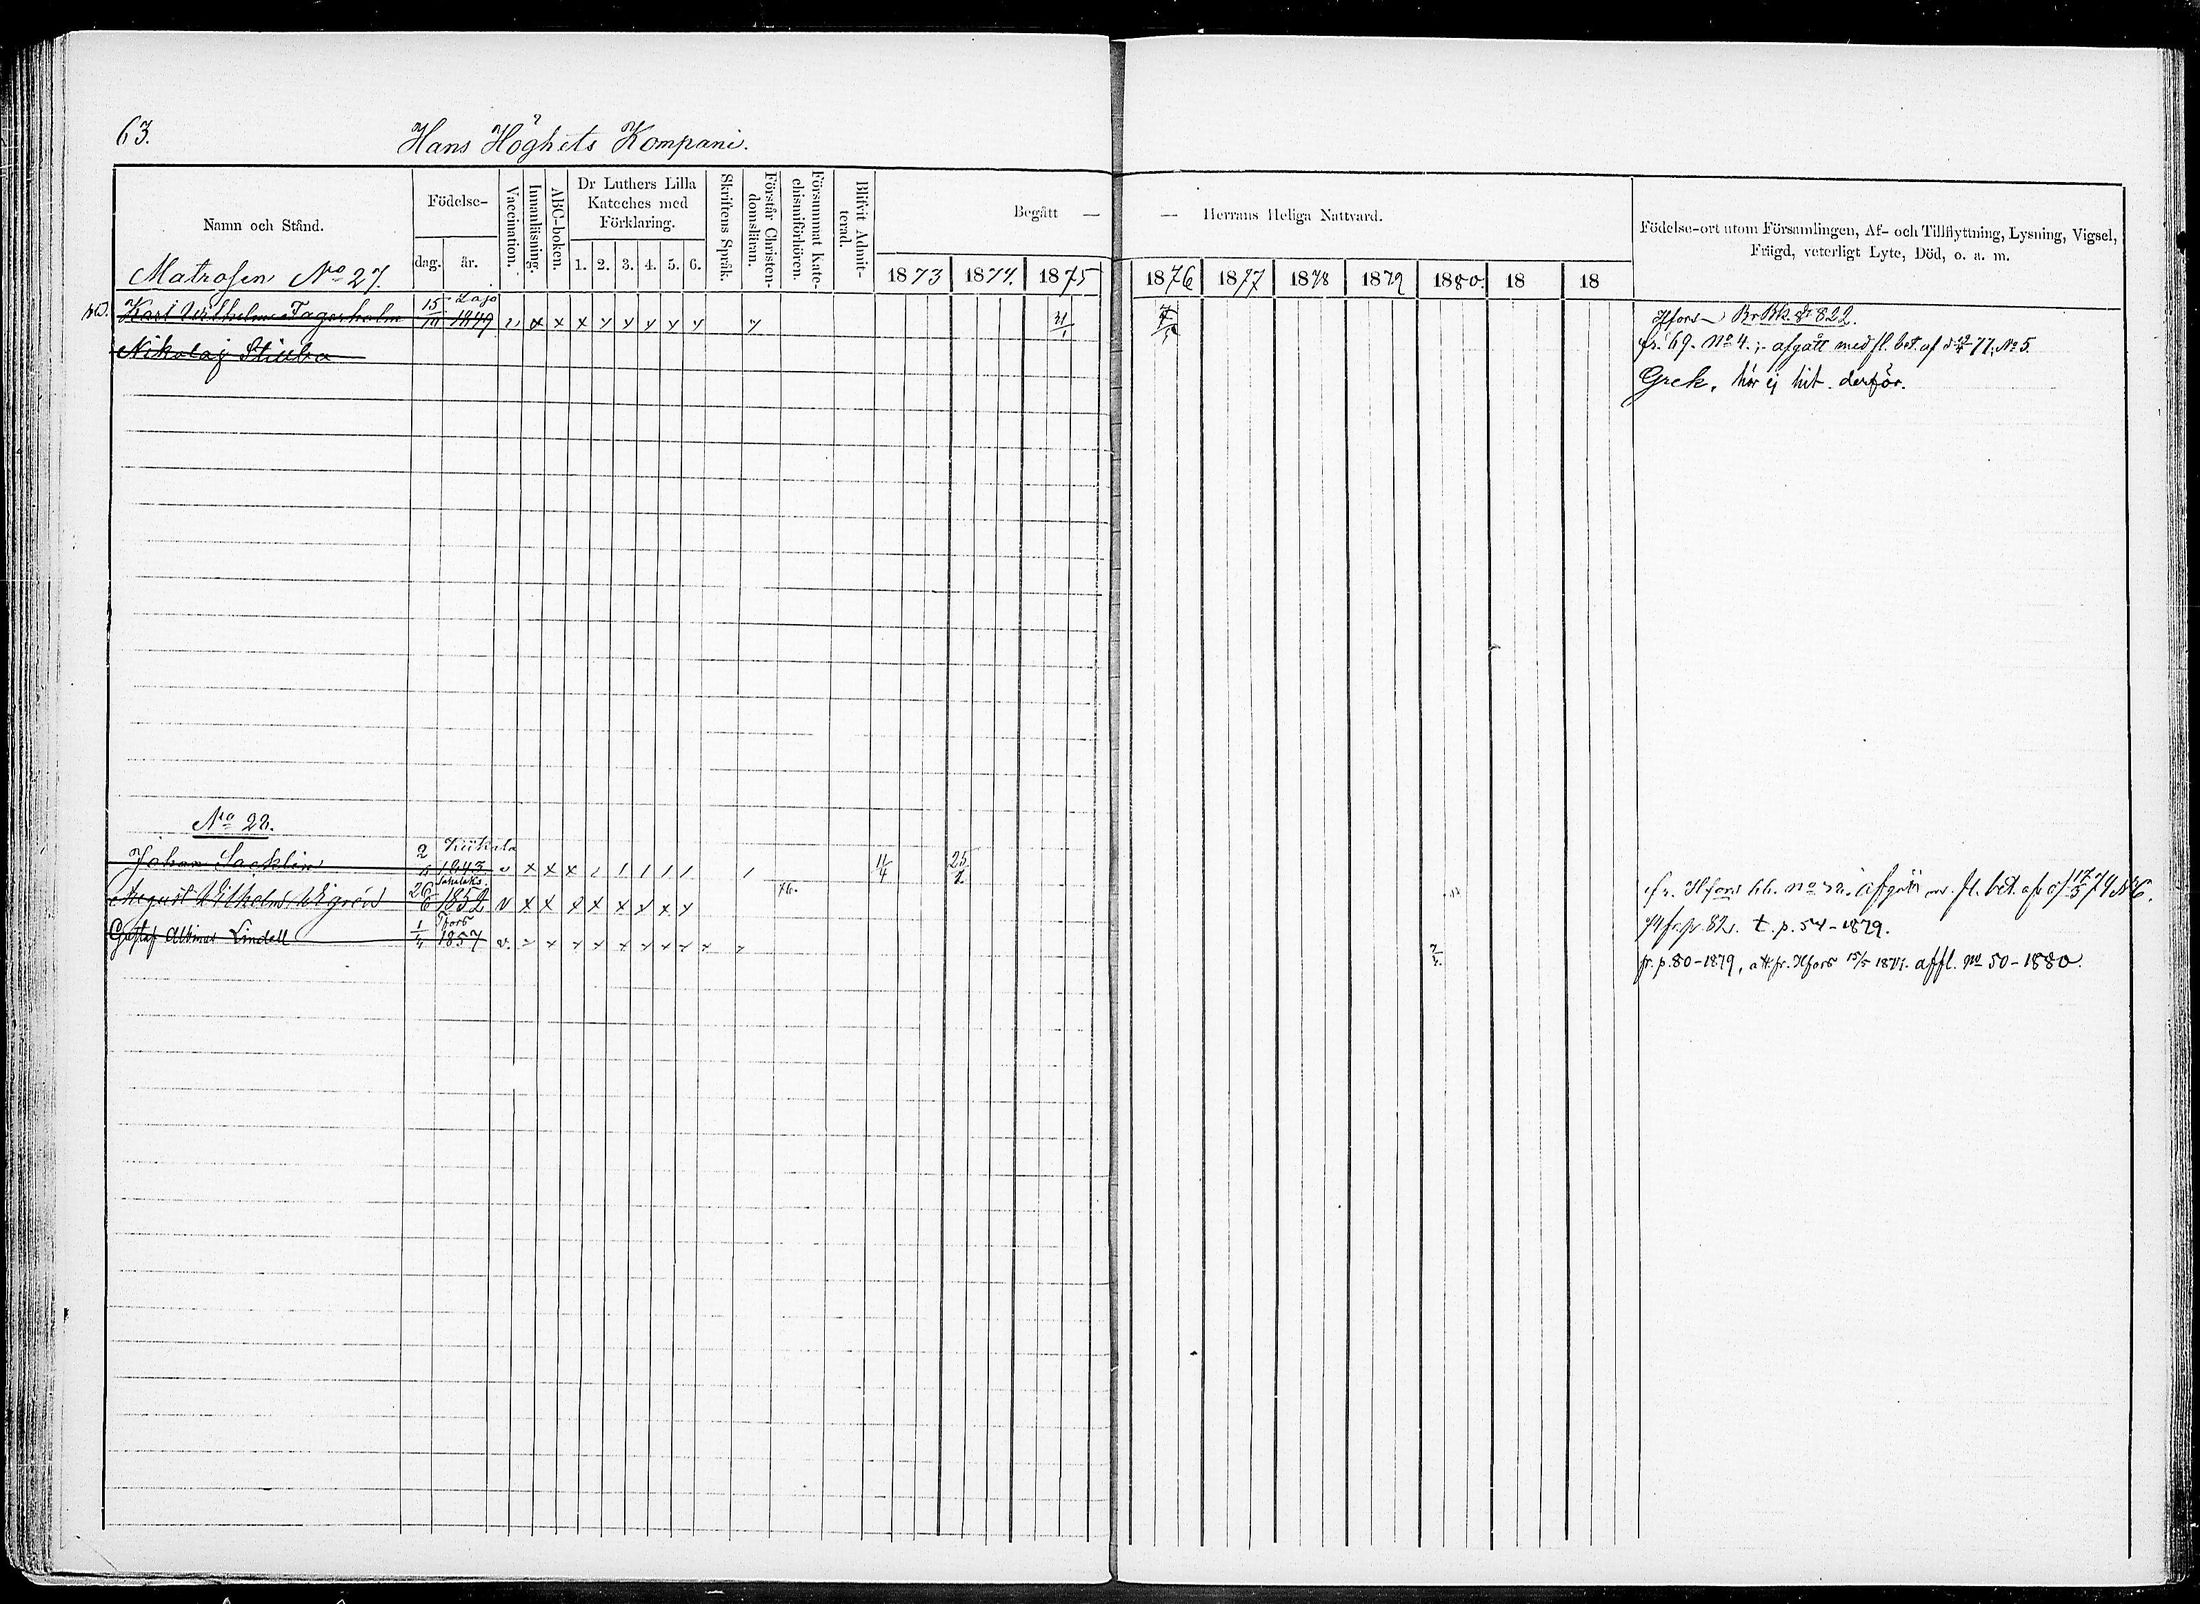 63.
Hans Höghets Kompani.
Namn och Stånd.
Födelse-
dag.
år.
Vaccination.
Innanläsning.
ABC-boken.
Dr Luthers Lilla
Kateches med
Förklaring.
1. 2. 3. 4. 5. 6.
Skriftens Språk.
Förstår Christen-
domsläran.
Försummat Kate-
chismiförhören.
Blifvit Admit-
terad.
Begått —
— Herrans Heliga Nattvard.
1873 1874. 1875
1876 1877 1878 1879 1880. 18 18
Födelse-ort utom Församlingen, Af- och Tillflyttning, Lysning, Vigsel,
Frägd, veterligt Lyte, Död, o. a. m.
Matrosen No 27.
Lojo
Karl Wilhelm Fagerholm 15/ 1849
Hfors Br Bk. 822.
fr. 69. No 4.; afgått med fl. bet. af 77, No 5.
Nikolaj
Grek, hör ej hit derför.
No 28.
Johan Sacklin 2/ 1843 v x x x 11/4 25/
fr. Hfors 66. No afgått m. fl. bet. af d. 17/5 74 No 6.
August Wilhelm 26/6 1852 v x x x x x x x 76.
74 fr. p. 82. t. p. 54-1879.
Hfors
Gustaf Lindell 1/ 1857 v.
fr. p. 80-1879, att. fr. Hfors 15/5 affl. No 50-1880.